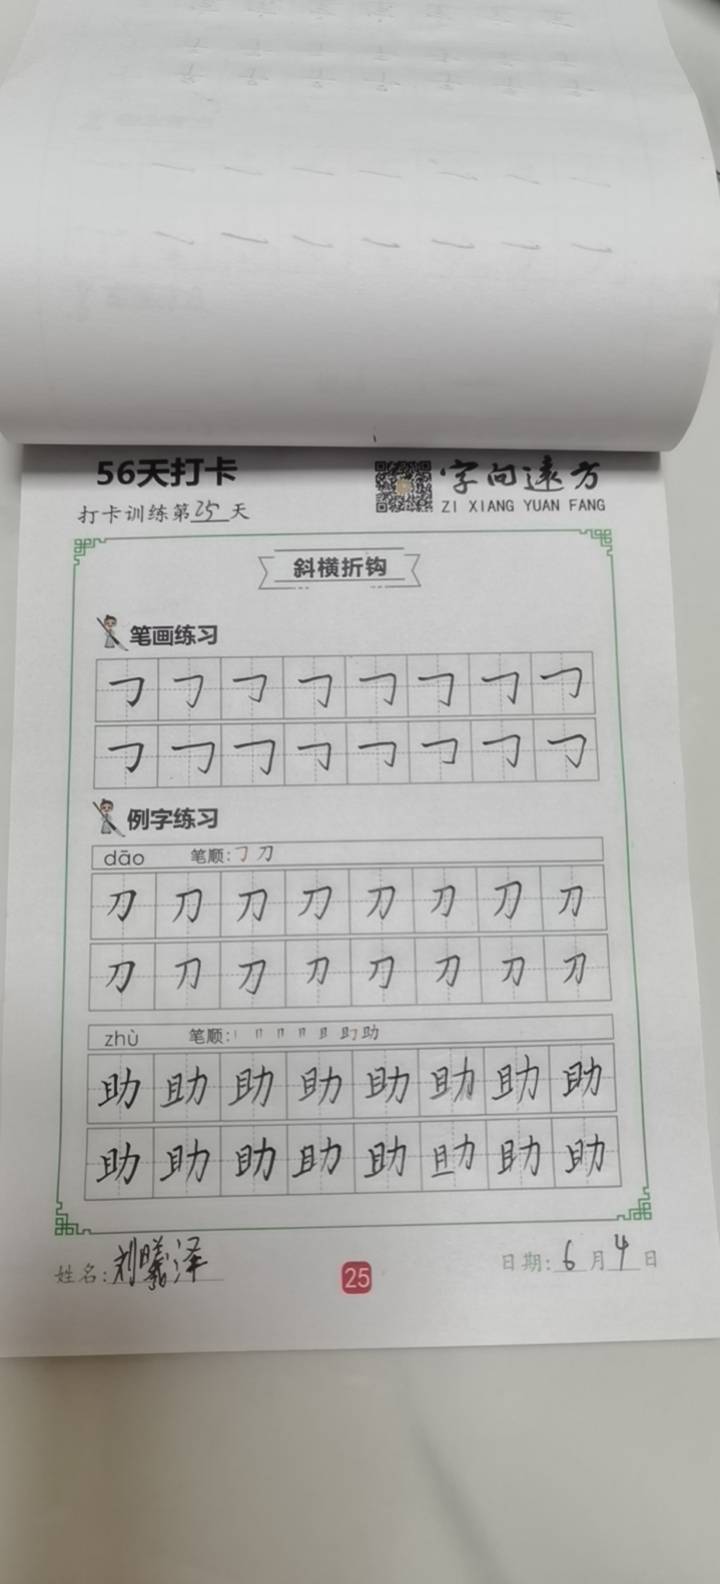 56天打卡
字向远方
打卡训练第25天
ZI XIANG YUAN FANG
斜横折钩
笔画练习
㇆ ㇆ ㇆ ㇆ ㇆ ㇆ ㇆ ㇆
㇆ ㇆ ㇆ ㇆ ㇆ ㇆ ㇆ ㇆
例字练习
dāo 笔顺:㇆刀
刀 刀 刀 刀 刀 刀 刀 刀
刀 刀 刀 刀 刀 刀 刀 刀
zhù 笔顺:丨 冂 冂 月 且 助
助 助 助 助 助 助 助 助
助 助 助 助 助 助 助 助
姓名:刘曦泽
25
日期:6月4日